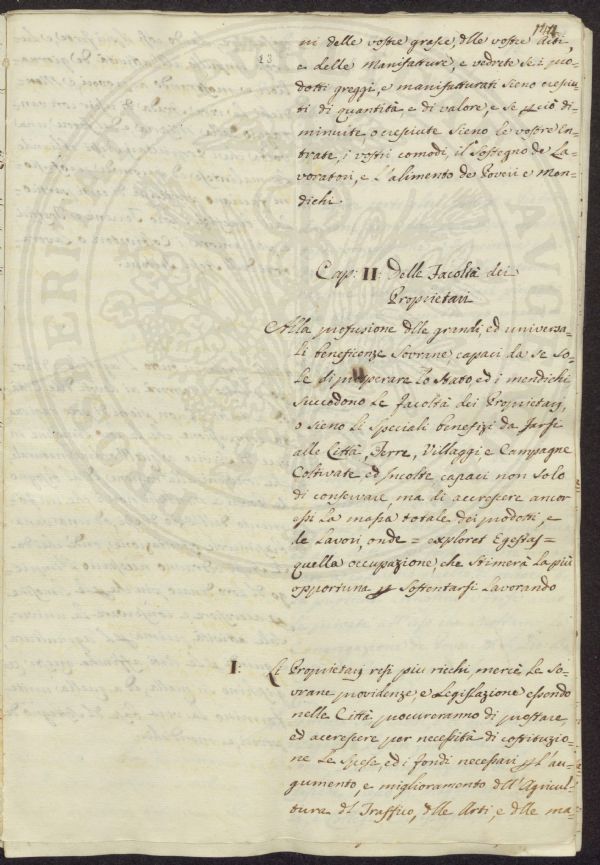 23
ni delle vostre grasce, dlle vostre Arti,
e delle Manifatture, e vedrete se i pro=
dotti greggi, e manifatturati sieno cresciu
ti di quantità e di valore, e se ciò di=
minuite, o cresciute sieno le vostre En=
trate, i vostri comodi, il Sostegno de La=
voratori, e l'alimento de Poveri e Men=
dichi
Cap: II: Delle Facoltà dei
Proprietarj
Alla profusione dlle grandi, ed universa=
li beneficenze Sovrane, capaci da se so=
le di prosperare lo Stato, ed i mendichi
succedono le facoltà dei Proprietarj,
o sieno li speciali benefizi da farsi
alle Città, Terre, Villaggi e Campagne
Coltivate ed Incolte, capaci non solo
di conservare, ma di accrescere ancor
essi la massa totale dei prodotti, e
de lavori, onde = exploret Egestas =
quella occupazione, che stimerà la più
opportuna p Sostentarsi Lavorando
I: Li Proprietarj resi più ricchi, mercè le So=
vrane providenze, e Legislazione essendo
nelle Città procureranno di prestare,
ed accrescere per necessità di costituzio=
ne le spese, ed i fondi necessari p l'au=
gumento, e miglioramento dll'Agricul=
tura dl Traffico, dlle Arti, e dlle ma=